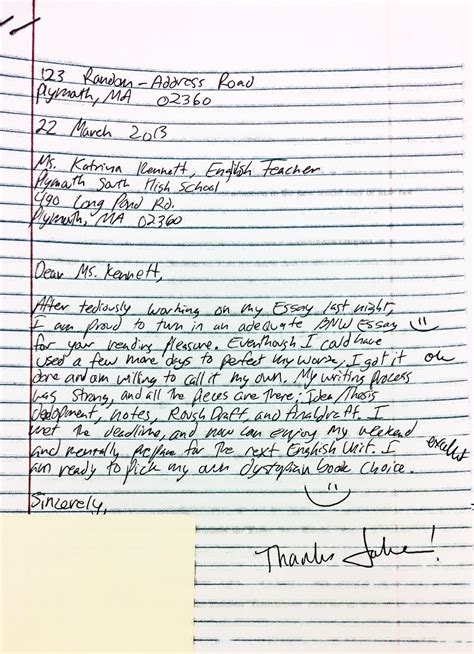 123 Random-Address Road
Plymouth, MA 02360
22 March 2013
Ms. Katrina Kennett, English Teacher
Plymouth South High School
490 Long Pond Rd.
Plymouth, MA 02360
Dear Ms. Kennett,
After tediously working on my Essay last night,
I am proud to turn in an adequate BNW Essay
for your reading pleasure. Eventhough I could have
used a few more days to perfect my work, I got it
done and am willing to call it my own. My writing process
was strong, and all the pieces are there; Idea/Thesis
development, notes, Rough Draft, and final draft. I
met the deadline, and now can enjoy my weekend
and mentally prepare for the next English Unit. I excellent
am ready to pick my own dystopian book choice.
Sincerely,
Thanks Jake!